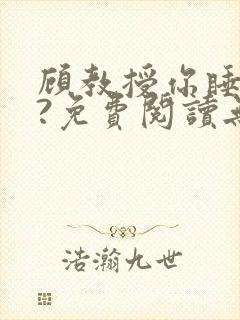 顧教授你睡
?免費閱讀無
浩瀚九世